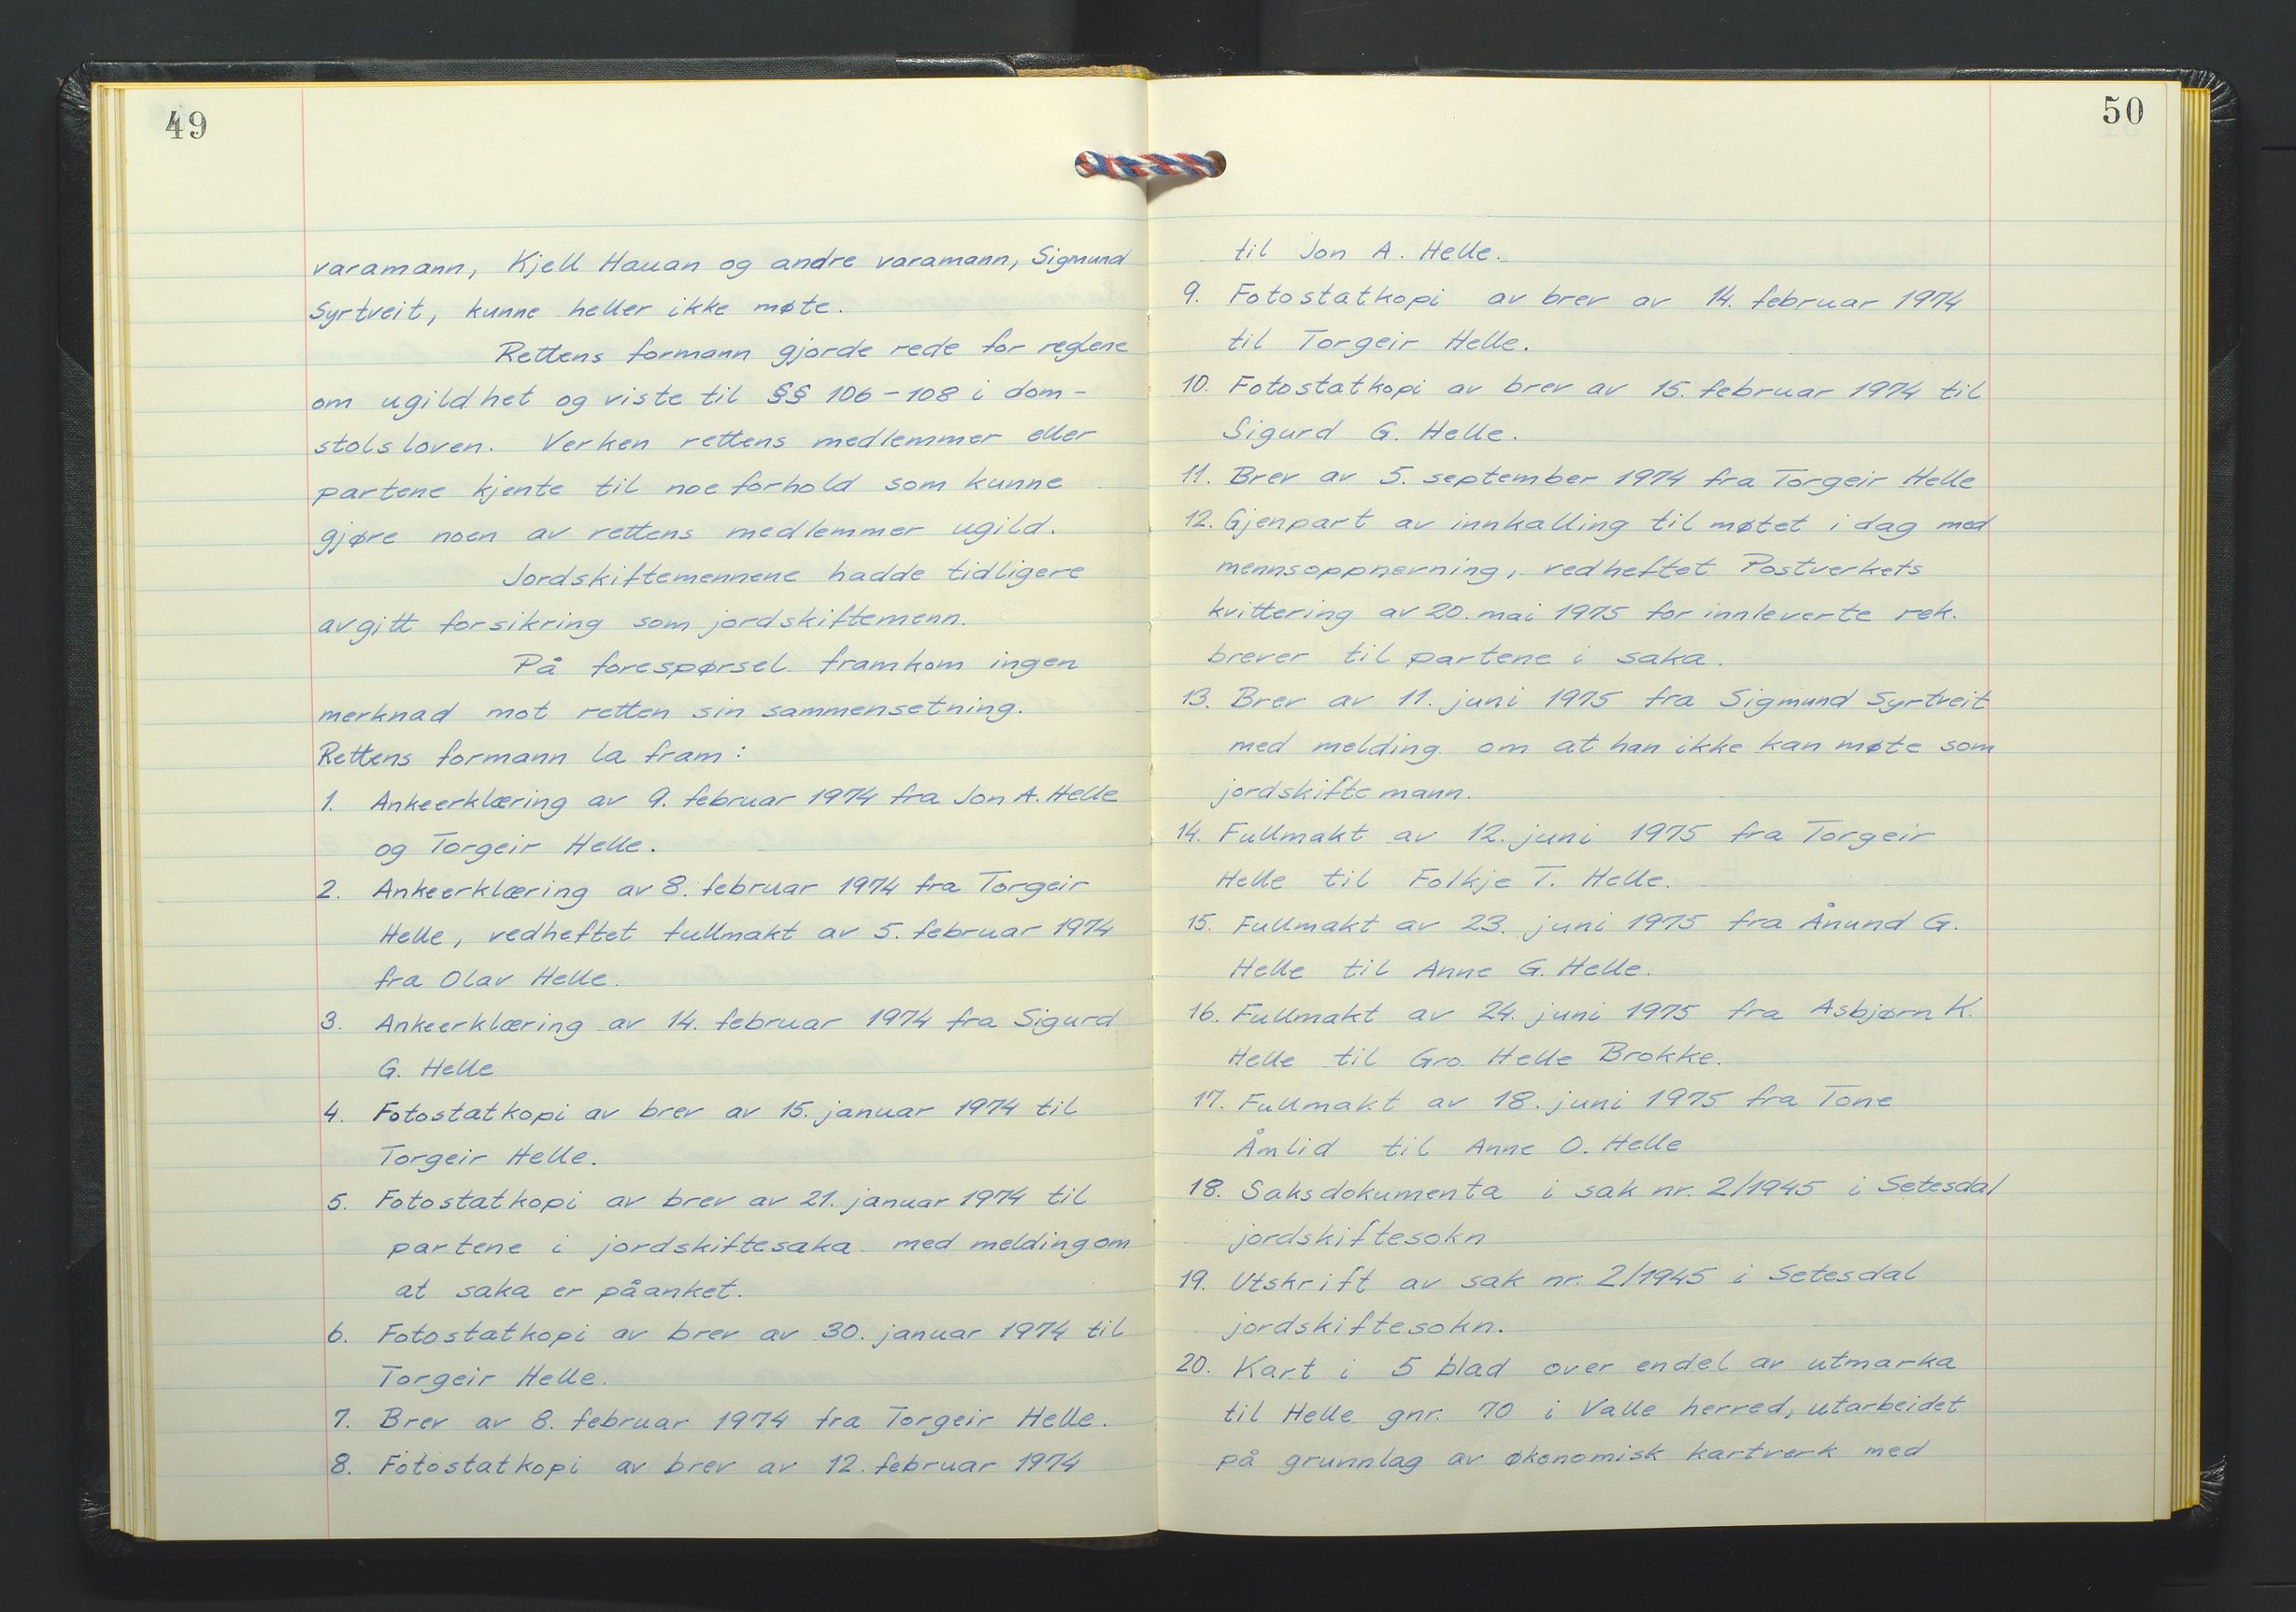 49
varamann, Kjell Hauan og andre varamann, Sigmund
Syrtveit, kunne heller ikke møte.
Rettens formann gjorde rede for reglene
om ugildhet og viste til §§ 106-108 i dom-
stolsloven. Verken rettens medlemmer eller
partene kjente til noe forhold som kunne
gjøre noen av rettens medlemmer ugild.
Jordskiftemennene hadde tidligere
avgitt forsikring som jordskiftemenn.
På forespørsel framkom ingen
merknad mot retten sin sammensetning.
Rettens formann la fram:
1. Ankeerklæring av 9. februar 1974 fra Jon A. Helle
og Torgeir Helle.
2. Ankeerklæring av 8. februar 1974 fra Torgeir
Helle, vedheftet fullmakt av 5. februar 1974
fra Olav Helle.
3. Ankeerklæring av 14. februar 1974 fra Sigurd
G. Helle
4. Fotostatkopi av brev av 15. januar 1974 til
Torgeir Helle.
5. Fotostatkopi av brev av 21. januar 1974 til
partene i jordskiftesaka med melding om
at saka er påanket.
6. Fotostatkopi av brev av 30. januar 1974 til
Torgeir Helle.
7. Brev av 8. februar 1974 fra Torgeir Helle.
8. Fotostatkopi av brev av 12. februar 1974
50
til Jon A. Helle.
9. Fotostatkopi av brev av 14. februar 1974
til Torgeir Helle.
10. Fotostatkopi av brev av 15. februar 1974 til
Sigurd G. Helle.
11. Brev av 5. september 1974 fra Torgeir Helle
12. Gjenpart av innkalling til møtet i dag med
mennsoppnevning, vedheftet Postverkets
kvittering av 20. mai 1975 for innleverte rek.
brever til partene i saka.
13. Brev av 11. juni 1975 fra Sigmund Syrtveit
med melding om at han ikke kan møte som
jordskiftemann.
14. Fullmakt av 12. juni 1975 fra Torgeir
Helle til Folkje T. Helle.
15. Fullmakt av 23. juni 1975 fra Ånund G.
Helle til Anne G. Helle.
16. Fullmakt av 24. juni 1975 fra Asbjørn K.
Helle til Gro Helle Brokke.
17. Fullmakt av 18. juni 1975 fra Tone
Åmlid til Anne O. Helle
18. Saksdokumenta i sak nr. 2/1945 i Setesdal
jordskiftesokn
19. Utskrift av sak nr. 2/1945 i Setesdal
jordskiftesokn.
20. Kart i 5 blad over endel av utmarka
til Helle gnr. 70 i Valle herred, utarbeidet
på grunnlag av økonomisk kartverk med